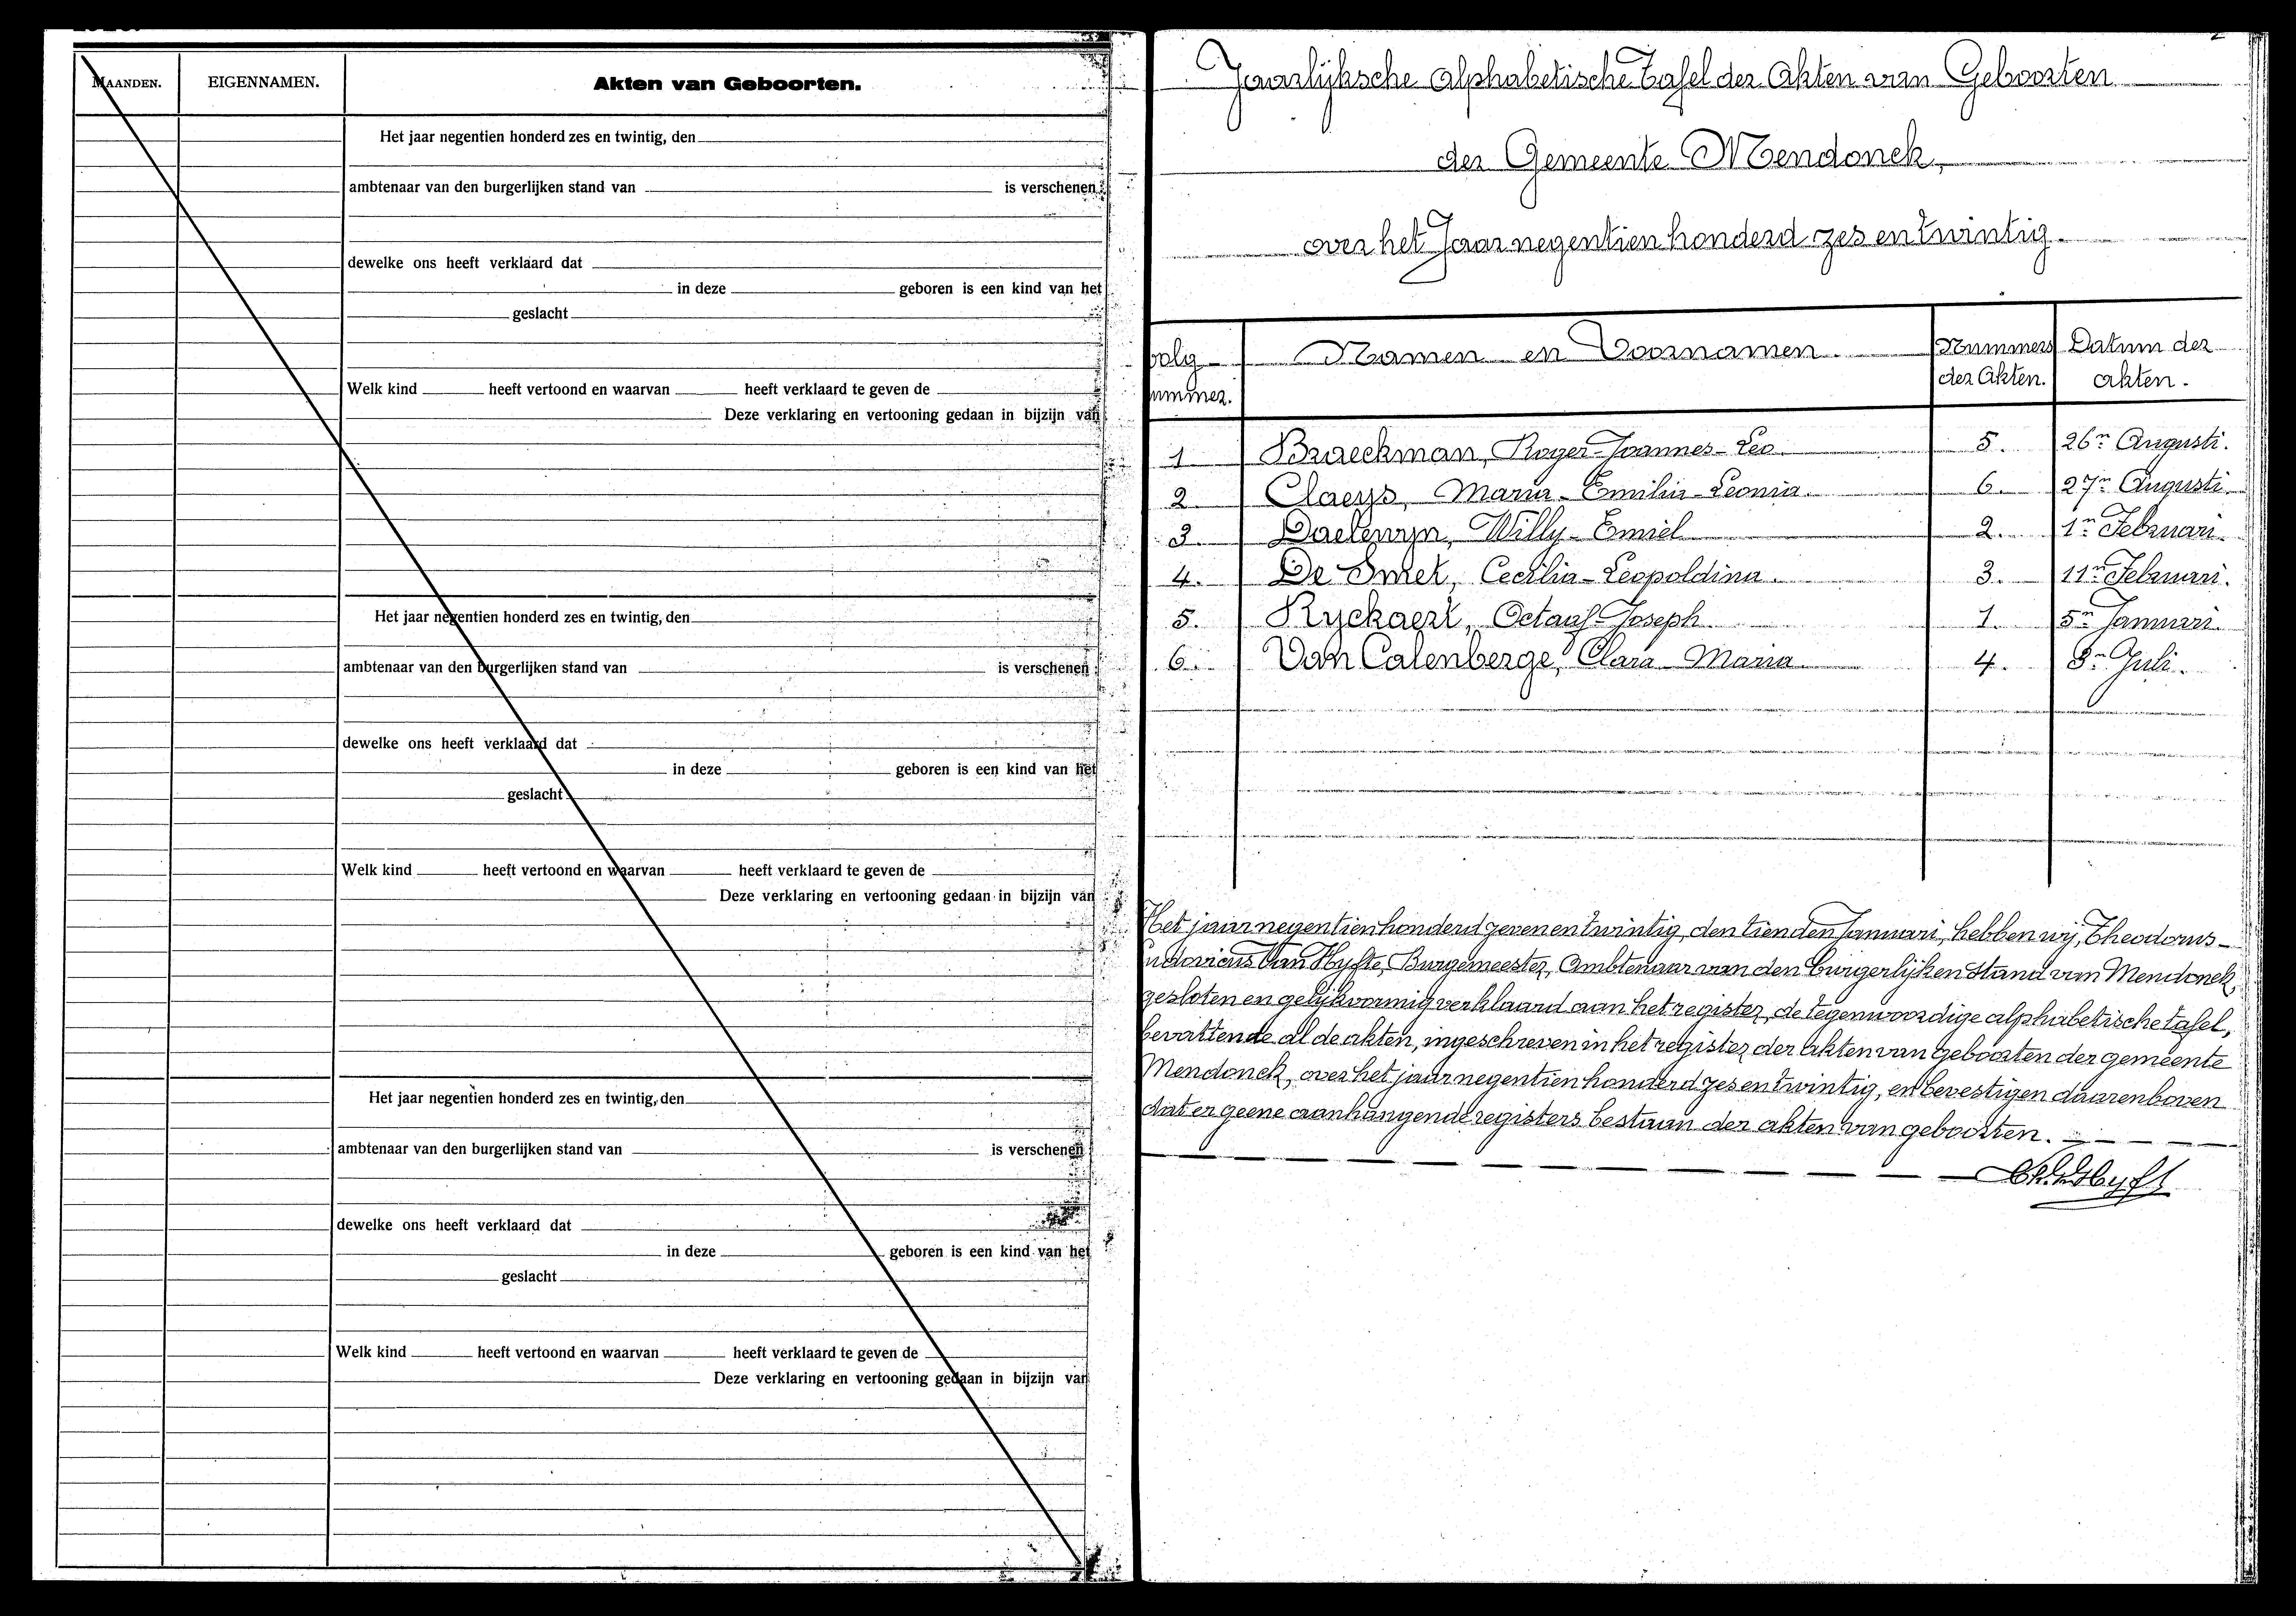 MAANDEN. EIGENNAMEN. Akten van Geboorten.
Het jaar negentien honderd zes en twintig, den
ambtenaar van den burgerlijken stand van is verschenen
dewelke ons heeft verklaard dat
in deze geboren is een kind van het
geslacht
Welk kind heeft vertoond en waarvan heeft verklaard te geven de
Deze verklaring en vertooning gedaan in bijzijn van
Het jaar negentien honderd zes en twintig, den
ambtenaar van den burgerlijken stand van is verschenen
dewelke ons heeft verklaard dat
in deze geboren is een kind van het
geslacht
Welk kind heeft vertoond en waarvan heeft verklaard te geven de
Deze verklaring en vertooning gedaan in bijzijn van
Het jaar negentien honderd zes en twintig, den
ambtenaar van den burgerlijken stand van is verschenen
dewelke ons heeft verklaard dat
in deze geboren is een kind van het
geslacht
Welk kind heeft vertoond en waarvan heeft verklaard te geven de
Deze verklaring en vertooning gedaan in bijzijn van
Jaarlijksche alphabetische tafel der Akten van Geboorten
der Gemeente Mendonck,
over het Jaar negentien honderd zes en twintig.
volg Namen en Voornamen. Nummers Datum der
ummer. der Akten. akten.
1 Braeckman, Roger-Joannes-Leo. 5. 26n Augusti.
2. Claeys, Maria-Emilia-Leonia. 6. 27n Augusti.
3. Daelewyn, Willy-Emiel 2. 1n Februari.
4. De Smet, Cecilia-Leopoldina. 3. 11n Februari.
5. Ryckaert, Octaaf-Joseph. 1. 5n Januari.
6. Van Calenberge, Clara-Maria. 4. 8n Juli.
Het jaar negentien honderd zeven en twintig, den tienden Januari, hebben wij, Theodorus-
udovicus Van Hyfte, Burgemeester, Ambtenaar van den burgerlijken stand van Mendonck,
gesloten en gelijkvormig verklaard aan het register, de tegenwoordige alphabetische tafel,
bevattende al de akten, ingeschreven in het register der akten van geboorten der gemeente
Mendonck, over het jaar negentien honderd zes en twintig, en bevestigen daarenboven
dat er geene aanhangende registers bestaan der akten van geboorten.